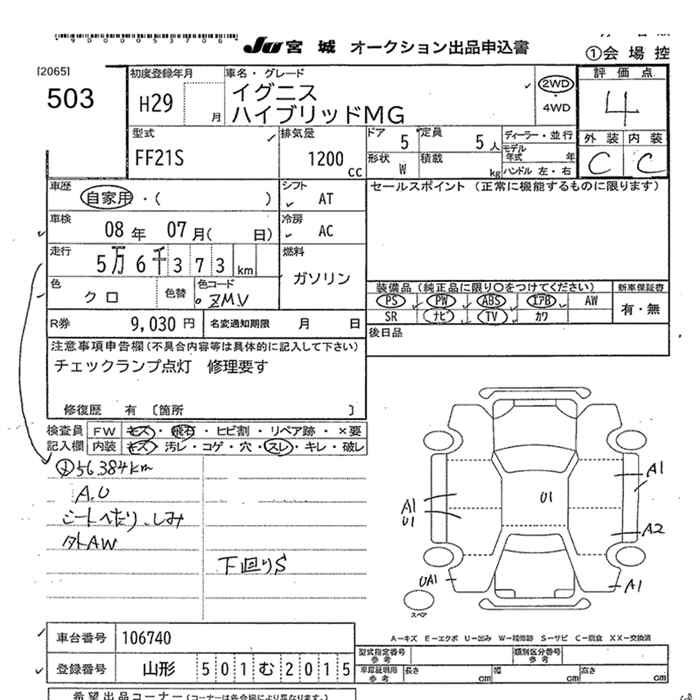 Ju 宮城 オークション出品申込書
①会場控
[2065]
503
初度登録年月
H29 月
車名・グレード
イグニス
ハイブリッドMG
2WD
・
4WD
評価点
4
外装 内装
C C
型式
FF21S
排気量
1200 cc
ドア 5
定員 5人
形状 W
積載 kg
ディーラー・並行
モデル年式 年
ハンドル 左・右
車歴
自家用・( )
シフト
AT
セールスポイント (正常に機能するものに限ります)
車検
08年 07月( 日)
冷房
AC
走行
5万6千373 km
燃料
ガソリン
色
クロ
色替
色コード
ZMV
装備品 (純正品に限り○をつけてください)
新車保証書
PS PW ABS エアB AW
有・無
SR ナビ TV カワ
R券 9,030円
名変通知期限 月 日
後日品
注意事項申告欄(不具合内容等は具体的に記入して下さい)
チェックランプ点灯 修理要す
修復歴 有 〔箇所 〕
検査員
記入欄
FW キズ・飛石・ヒビ割・リペア跡・×要
内装 キズ・汚レ・コゲ・穴・スレ・キレ・破レ
56384km
A.U
シートへたり、しみ
タトAW
下回りS
A1
U1
U1
A1
A2
UA1
A1
スペア
A-キズ E-エクボ U-凹み W-補修跡 S-サビ C-腐食 XX-交換済
車台番号 106740
登録番号 山形 501む2015
型式指定番号
参考
類別区分番号
参考
車庫証明用
参考
長さ cm
幅 cm
高さ cm
希望出品コーナー(コーナーは各会場により異なります。)